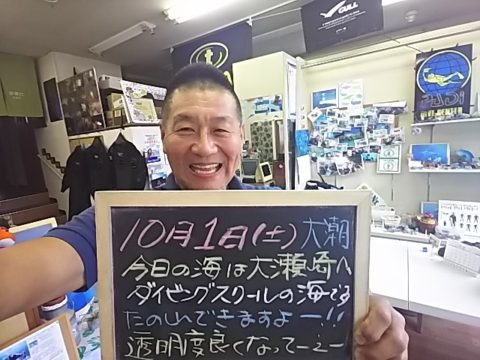 GULL
PADI
10月1日(土)大潮
今日の海は大瀬崎へ
ダイビングスクールの海です
たのしんできますよー!!
透明度良くなってーえー